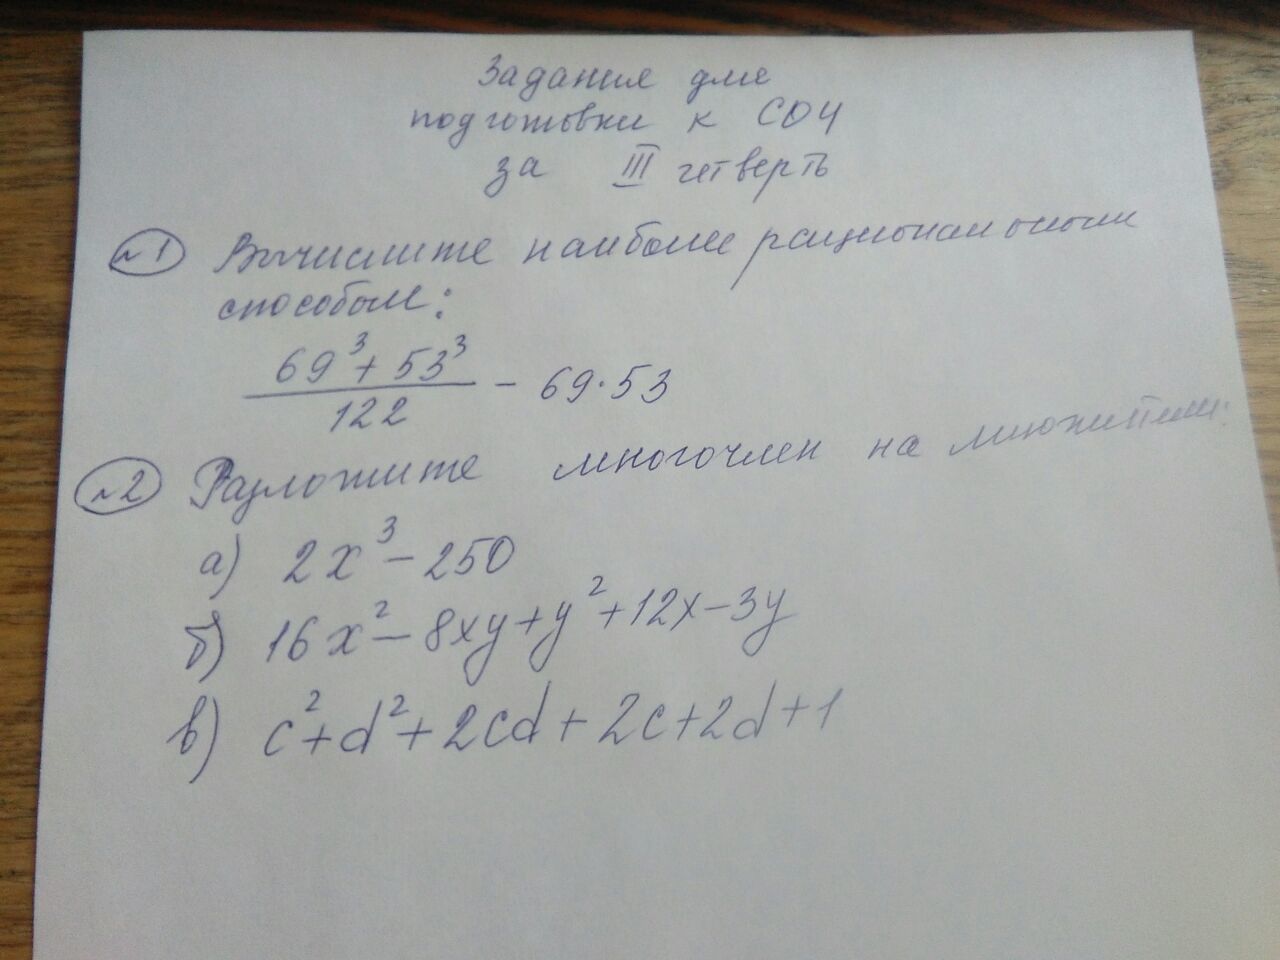 Задания для
подготовки к СОЧ
за III четверть
№1 Вычислите наиболее рациональным
способом:
69³ + 53³
122
- 69·53
№2 Разложите многочлен на множители:
а) 2x³ - 250
б) 16x² - 8xy + y² + 12x - 3y
в) c² + d² + 2cd + 2c + 2d + 1